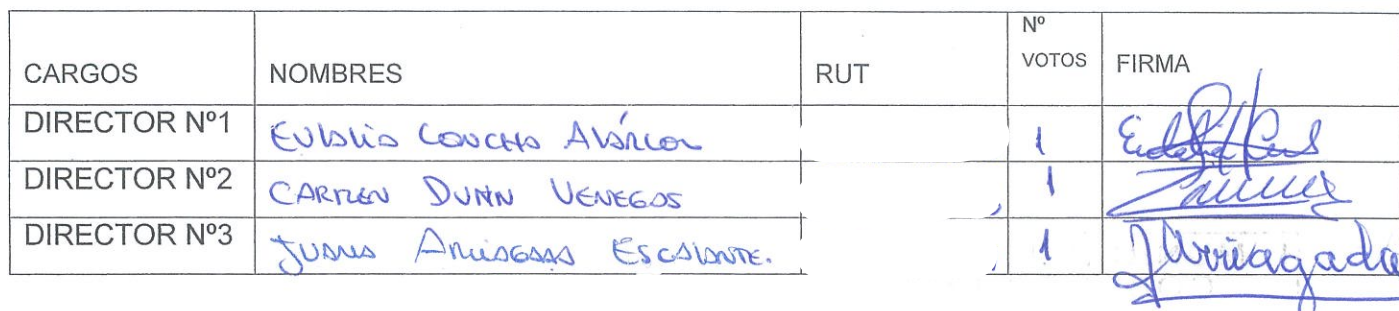 CARGOS NOMBRES RUT Nº VOTOS FIRMA
DIRECTOR Nº1 Eulalia Concha Alarcon 1
DIRECTOR Nº2 CARMEN DUNN VENEGAS 1
DIRECTOR Nº3 JUANA ARRIAGADA ESCALANTE. 1 JArriagada